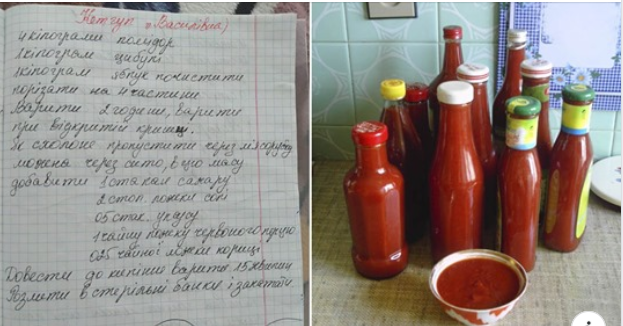 Кетчуп (Василівна)
4 кілограми помідор
1 кілограм цибулі
1 кілограм яблук почистити
порізати на 4 частини
Варити 2 години, варити
при відкритій кришці.
Як схолоне пропустити через м'ясорубку
можна через сито, в цю масу
добавити 1 стакан сахару
2 стол. ложки солі
0,5 стак. уксусу
1 чайну ложку червоного перцю
0,25 чайної ложки кориці
Довести до кипіння варити 15 хвилин
Розлити в стерільні банки і закатати.